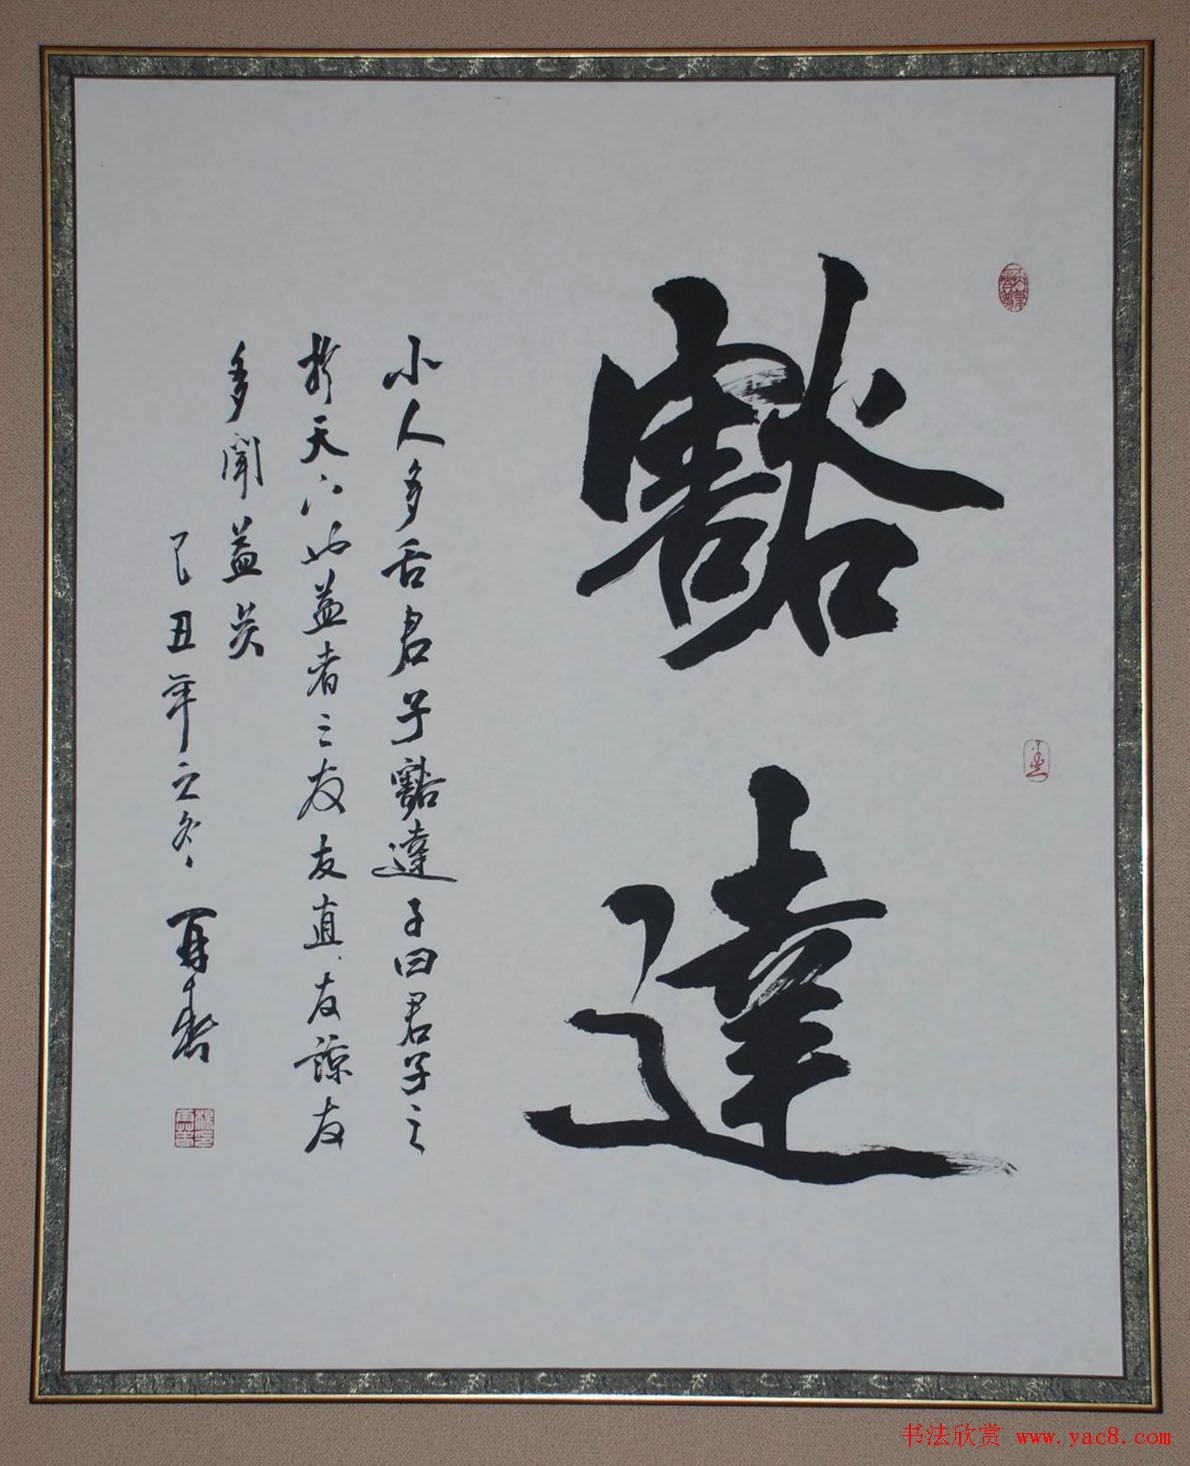 豁達
小人多舌君子豁達子曰君子之
於天下也益者三友友直友諒友
多聞益矣
己丑年之冬
书法欣赏 www.yac8.com